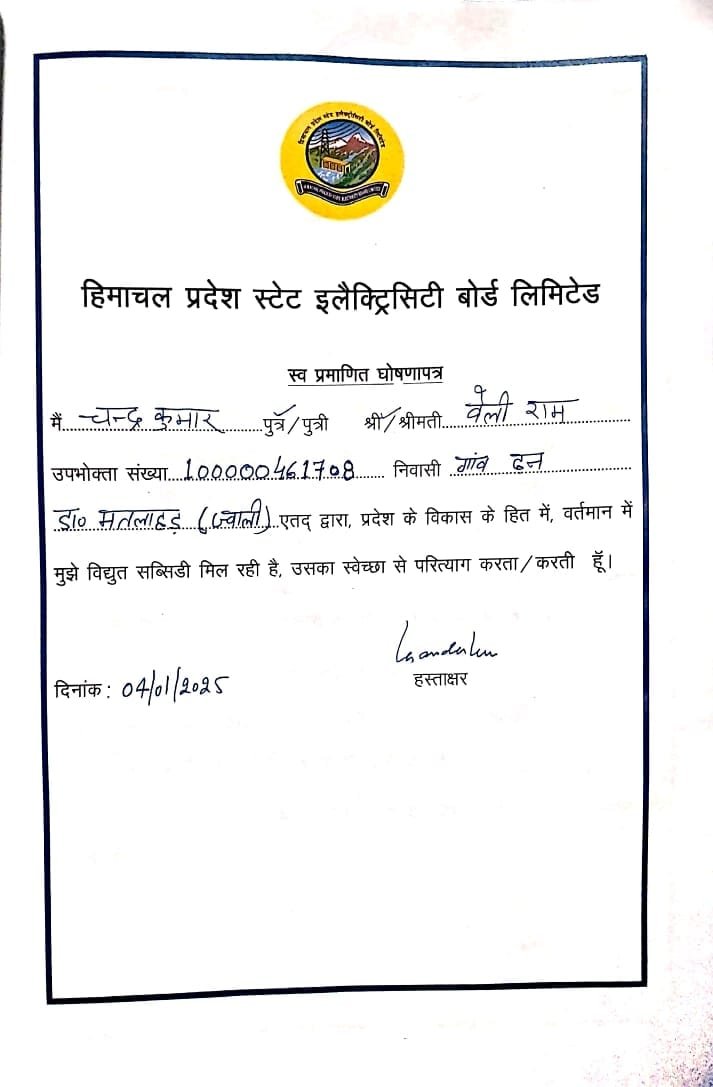 हिमाचल प्रदेश स्टेट इलेक्ट्रिसिटी बोर्ड लिमिटेड
हिमाचल प्रदेश स्टेट इलैक्ट्रिसिटी बोर्ड लिमिटेड
स्व प्रमाणित घोषणापत्र
मैं चन्द्र कुमार पुत्र/पुत्री श्री/श्रीमती वेली राम
उपभोक्ता संख्या 100000461708 निवासी गांव ढन
डा० मतलाहड़ (ज्वाली) एतद् द्वारा, प्रदेश के विकास के हित में, वर्तमान में
मुझे विद्युत सब्सिडी मिल रही है, उसका स्वेच्छा से परित्याग करता/करती हूँ।
हस्ताक्षर
दिनांक : 04/01/2025